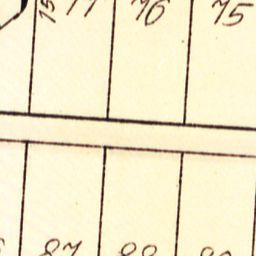 15 77 76 75
87 88 89